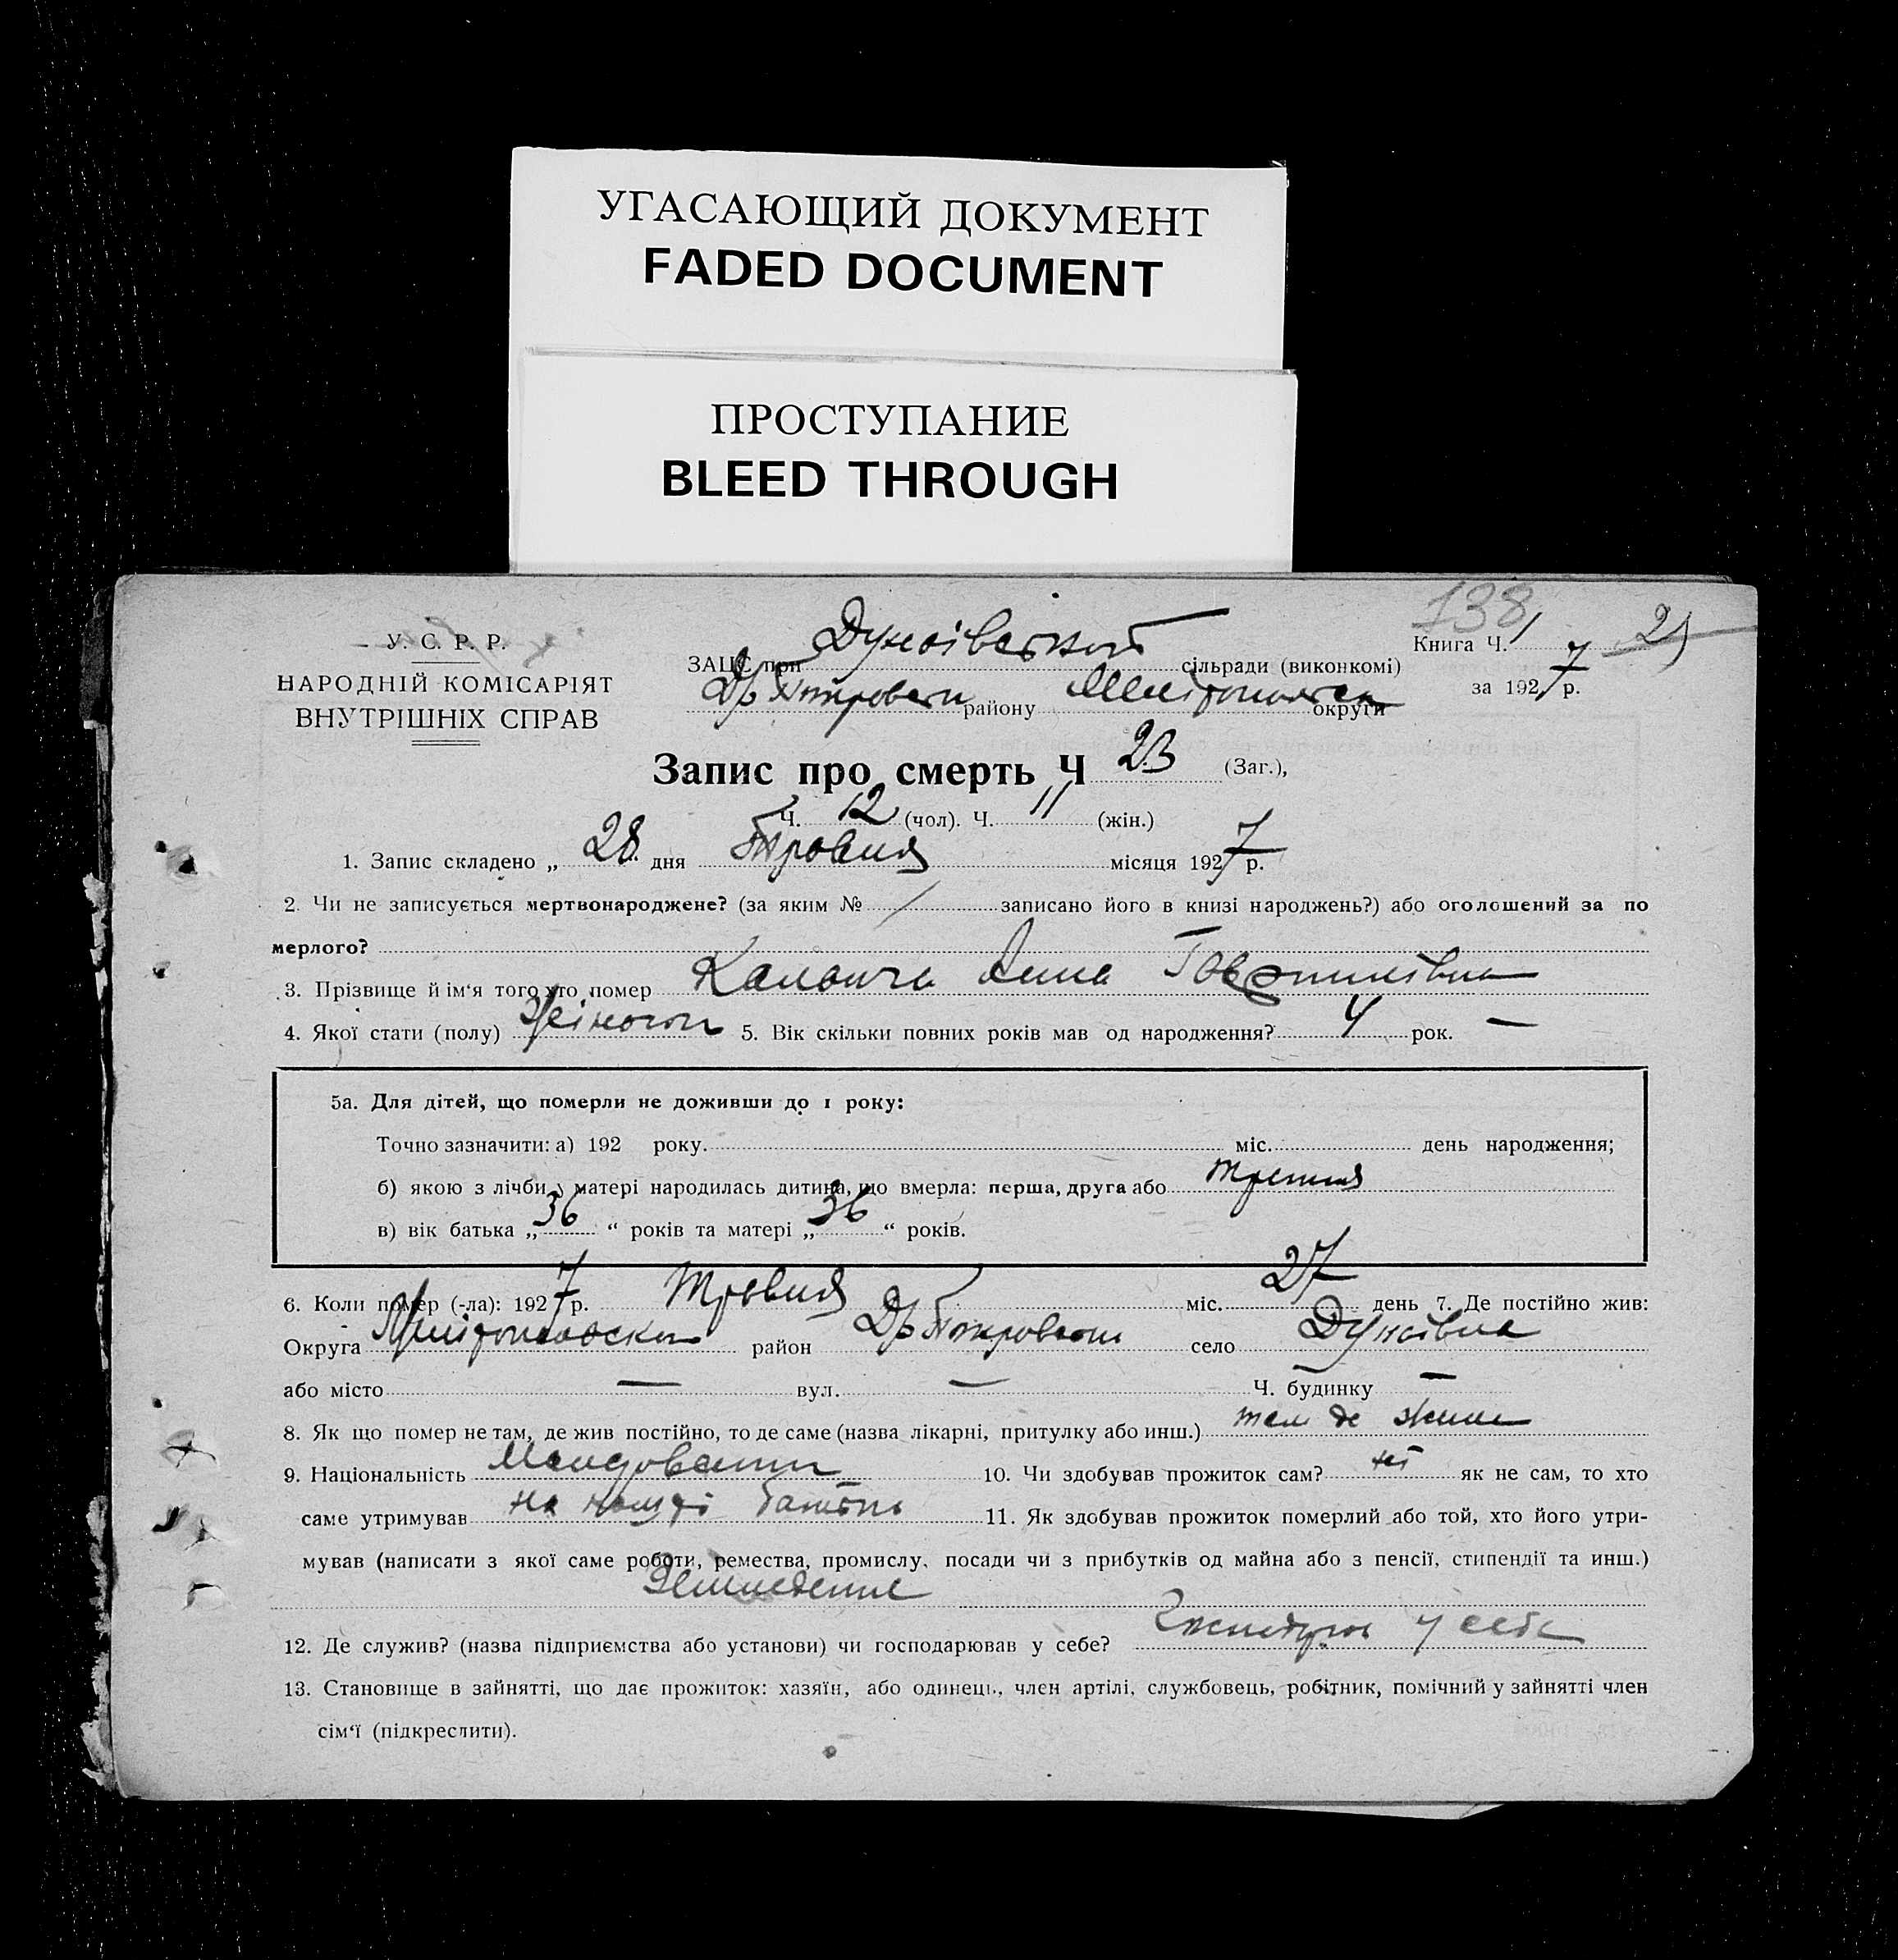 УГАСАЮЩИЙ ДОКУМЕНТ
FADED DOCUMENT
ПРОСТУПАНИЕ
BLEED THROUGH
138
У. С. Р. Р.
НАРОДНІЙ КОМІСАРІЯТ
ВНУТРІШНІХ СПРАВ
Книга Ч. 1
ЗАЦС при Дунаївський сільради (виконкомі)
за 1927 р.
району округи
Запис про смерть Ч 23 (Заг.),
Ч. 12 (чол). Ч. 11 (жін.)
1. Запис складено „ 28 дня Травня місяця 1927 р.
2. Чи не записується мертвонароджене? (за яким № записано його в книзі народжень?) або оголошений за по
мерлого?
3. Прізвище й ім'я того хто помер Анна Гаврилівна
4. Якої стати (полу) Жіночої 5. Вік скільки повних років мав од народження? 4 рок. —
5а. Для дітей, що померли не доживши до 1 року:
Точно зазначити: а) 192 року. міс. день народження;
б) якою з лічби у матері народилась дитина, що вмерла: перша, друга або третя
в) вік батька „ 36 “ років та матері „ 36 “ років.
6. Коли помер (-ла): 1927 р. Травня міс. 27 день 7. Де постійно жив:
Округа район село Дунаївка
або місто — вул. — Ч. будинку —
8. Як що помер не там, де жив постійно, то де саме (назва лікарні, притулку або инш.) там де
9. Національність 10. Чи здобував прожиток сам? ні як не сам, то хто
саме утримував на 11. Як здобував прожиток померлий або той, хто його утри-
мував (написати з якої саме роботи, ремества, промислу, посади чи з прибутків од майна або з пенсії, стипендії та инш.)
12. Де служив? (назва підприємства або установи) чи господарював у себе? у себе
13. Становище в зайнятті, що дає прожиток: хазяїн, або одинець, член артілі, службовець, робітник, помічний у зайнятті член
сім'ї (підкреслити).